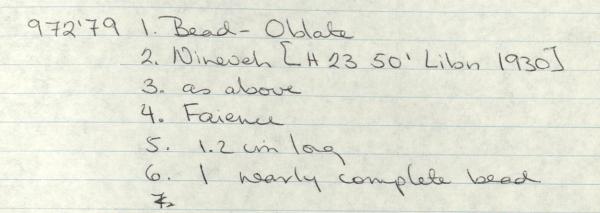 972'79 1. Bead - Oblate
2. Nineveh [H 23 50' Libn 1930]
3. as above
4. Faience
5. 1.2 cm long
6. 1 nearly complete bead
7.